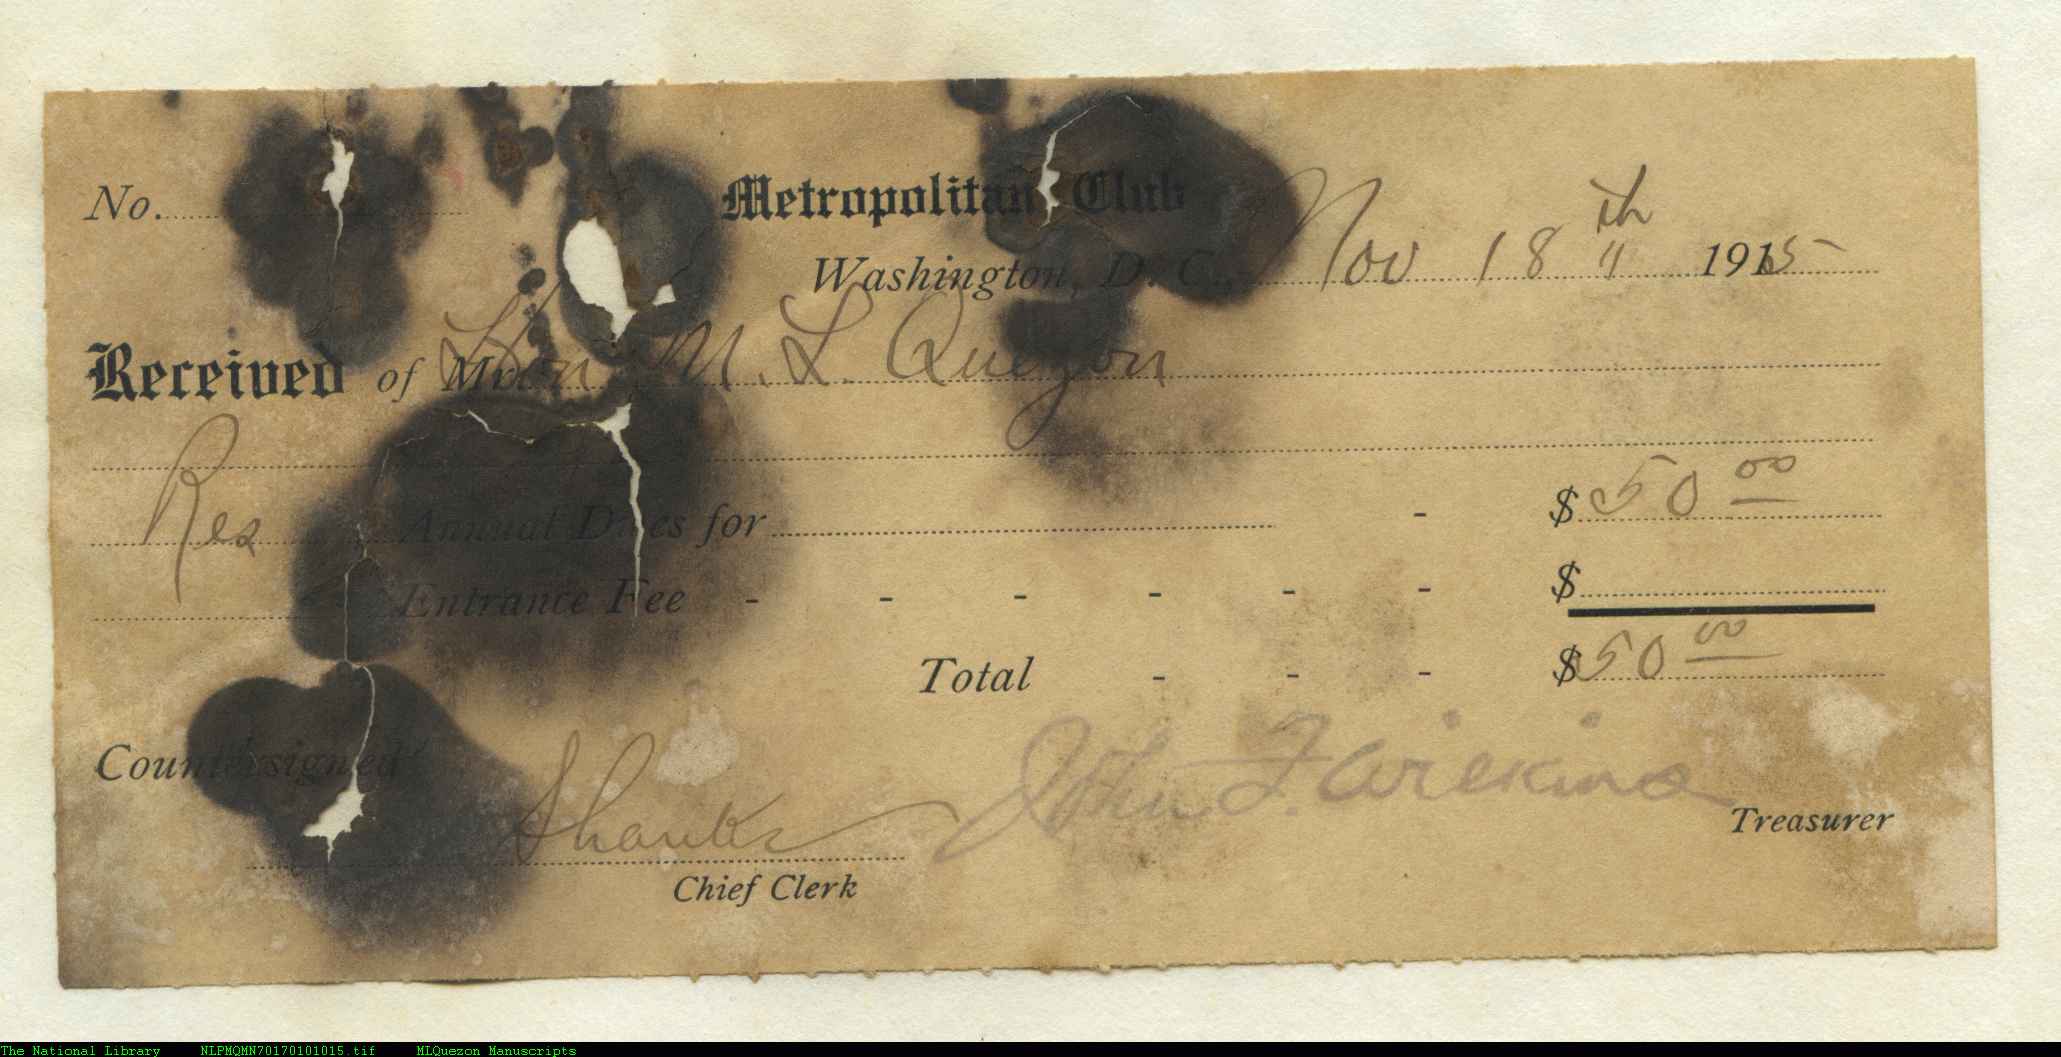 No.
Metropolitan Club
Washington, D. C., Nov 18th 1915
Received of Mr. Hon M. L. Quezon
Res Annual Dues for - $ 50 00
Entrance Fee - - - - - - $
Total - - - $ 50 00
Countersigned
Shanks John F. Wilkins
Treasurer
Chief Clerk
The National Library NLPMQMN70170101015.tif MLQuezon Manuscripts